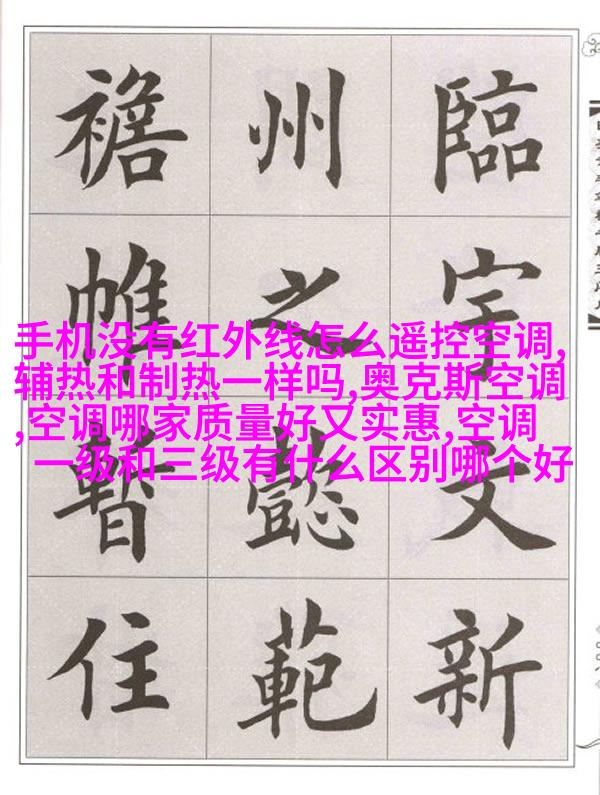 臨宇文新
州之懿範
襜帷暫住
手机没有红外线怎么遥控空调,
辅热和制热一样吗,奥克斯空调
,空调哪家质量好又实惠,空调
一级和三级有什么区别哪个好